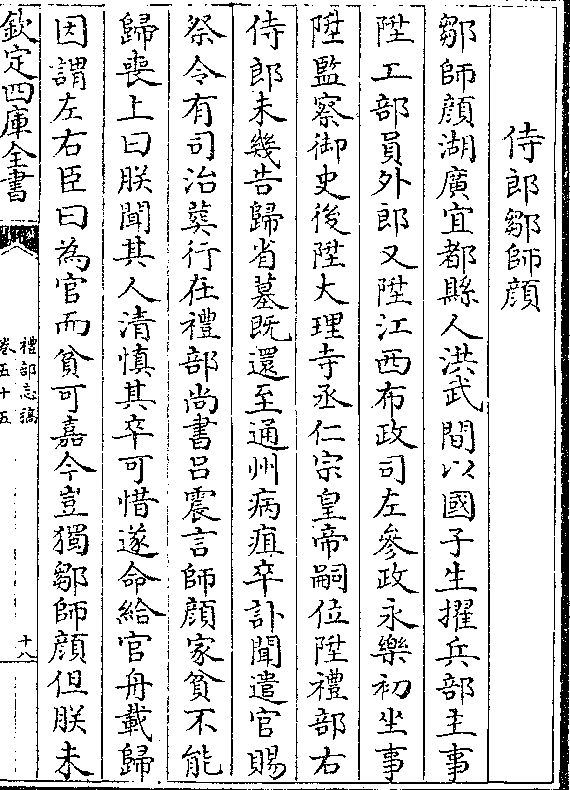 侍郎鄒師顏
鄒師顏湖廣宜都縣人洪武間以國子生擢兵部主事
陞工部員外郎又陞江西布政司左參政永樂初坐事
陞監察御史後陞大理寺丞仁宗皇帝嗣位陞禮部右
侍郎未幾告歸省墓既還至通州病疽卒訃聞遣官賜
祭令有司治葬行在禮部尚書呂震言師顏家貧不能
歸喪上曰朕聞其人清慎其卒可惜遂命給官舟載歸
因謂左右臣曰為官而貧可嘉今豈獨鄒師顏但朕未
欽定四庫全書
禮部志稿
卷五十五
十八